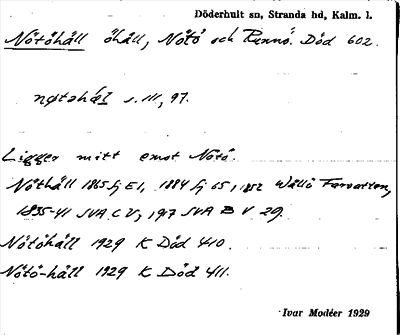 Döderhult sn, Stranda hd, Kalm. l.
Nötöhåll öhåll, Nötö och Runnö. Död 602.
s. III, 97.
Ligger mitt emot Nötö.
Nöthåll 1865 Sj E1, 1884 Sj 65, 1852 Wållö Farvatten,
1835-41 SVA C V, 1917 SVA B V 29.
Nötöhåll 1929 K Död 410.
Nötö-håll 1929 K Död 411.
Ivar Modéer 1929